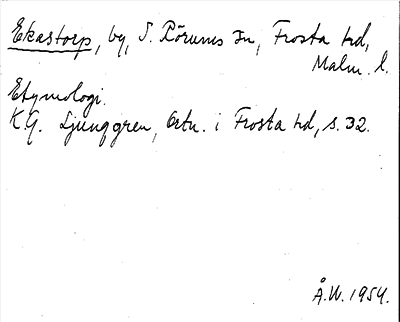 Ekastorp, by, S. Rörums sn, Frosta hd,
Malm. l.
Etymologi.
K.G. Ljunggren, Ortn. i Frosta hd, s. 32.
Å.W. 1954.